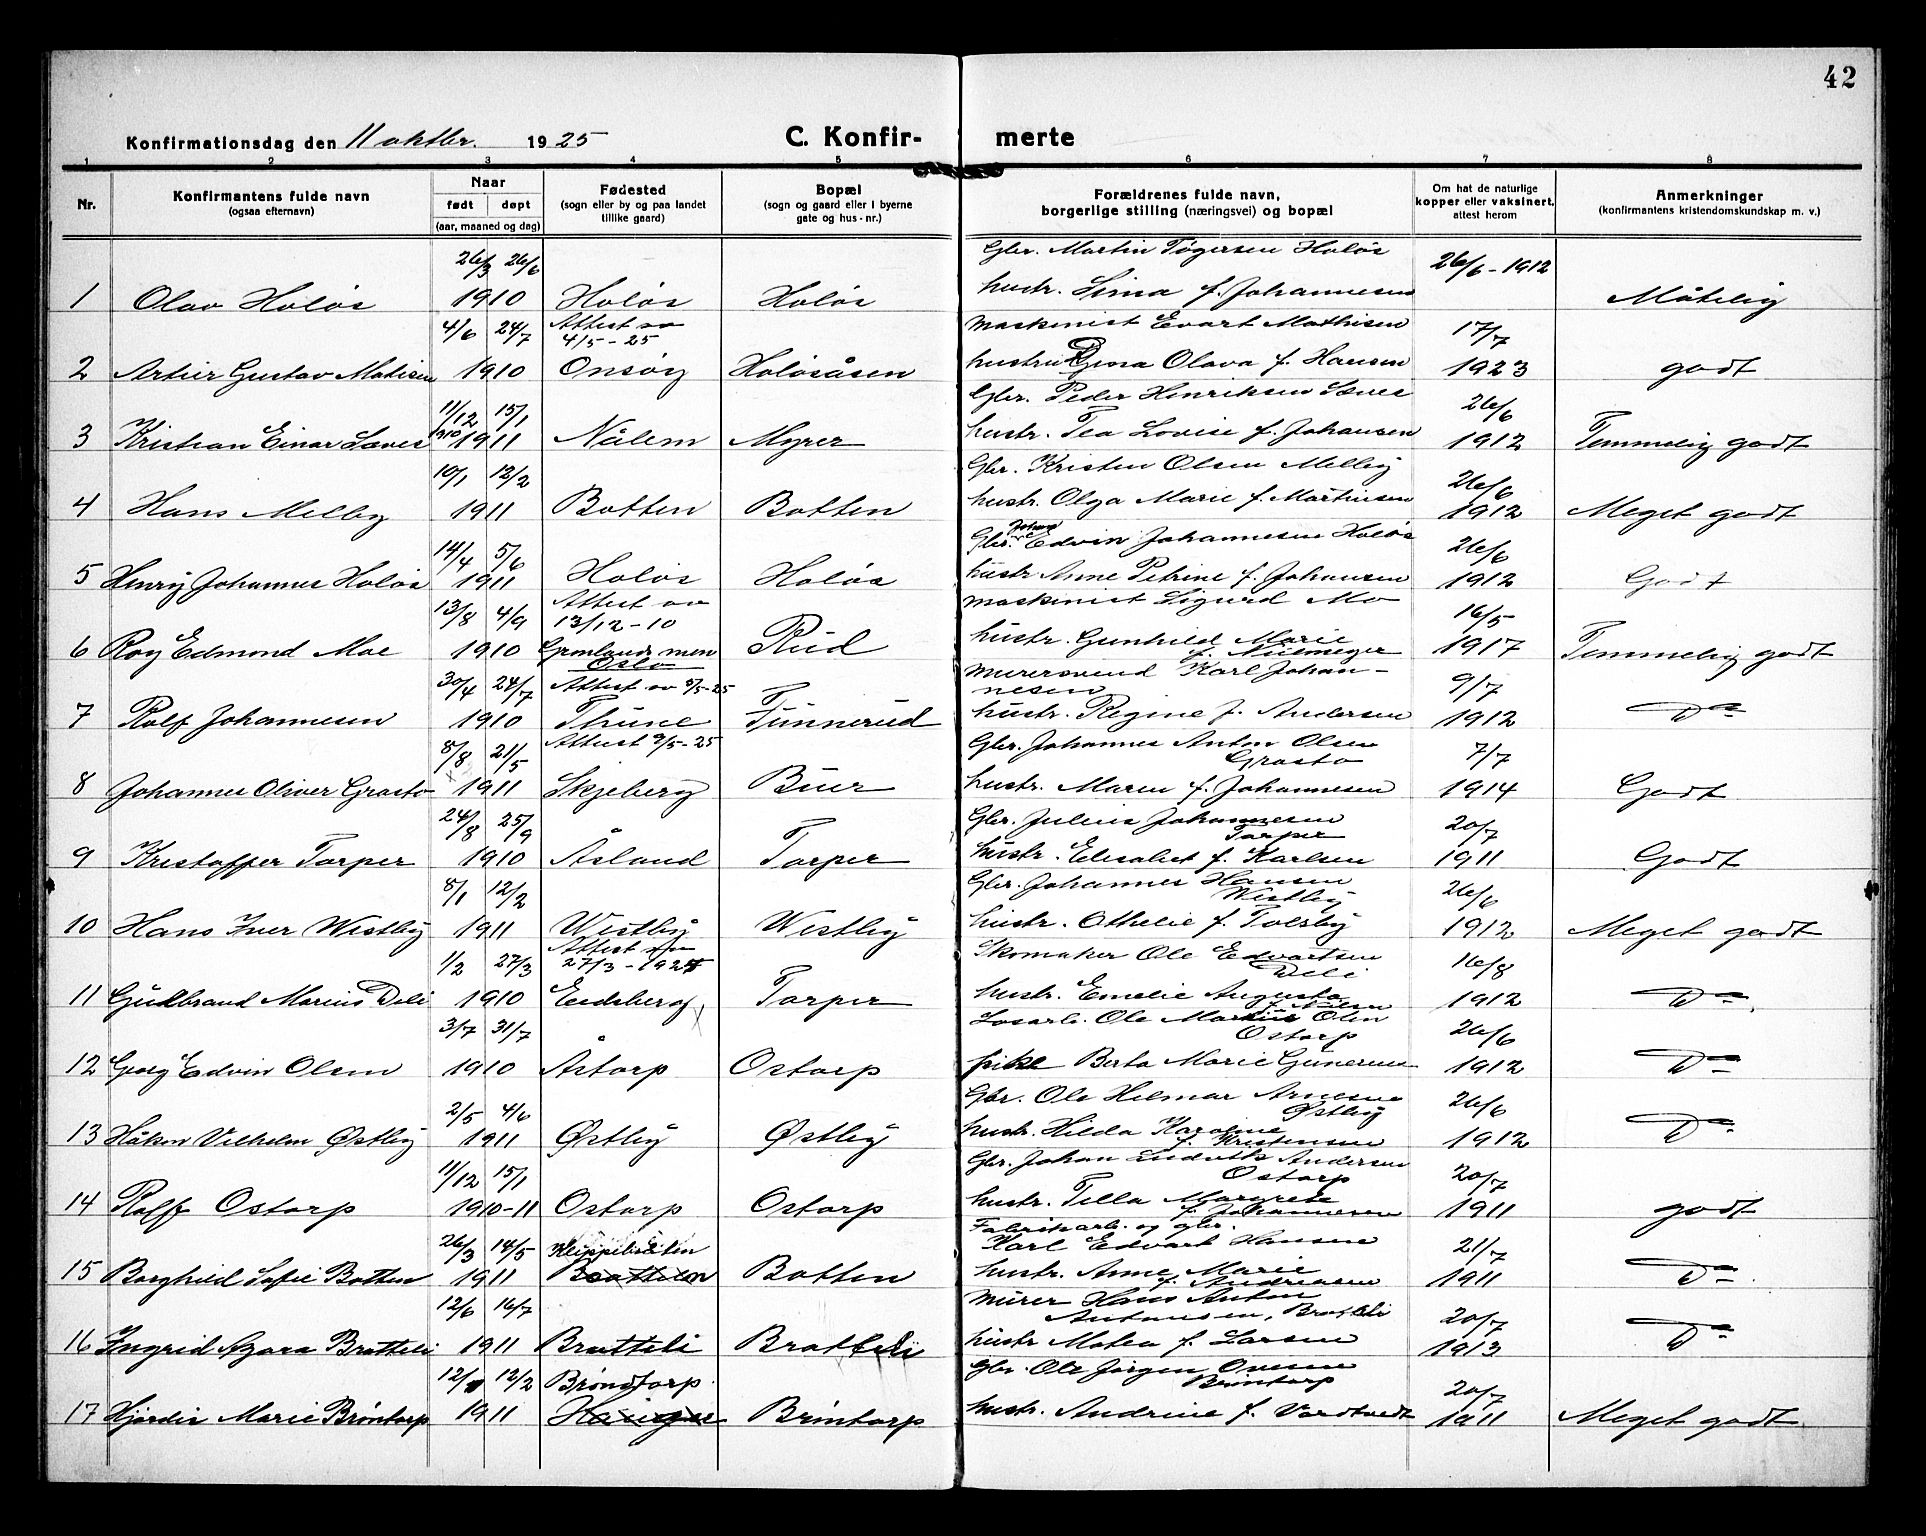 42
Konfirmationsdag den 11 oktbr. 1925
C. Konfir- merte
1 2 3 4 5 6 7 8
Nr. Konfirmantens fulde navn (ogsaa efternavn) Naar født døpt (aar, maaned og dag) Fødested (sogn eller by og paa landet tillike gaard) Bopæl (sogn og gaard eller i byerne gate og hus-nr.) Forældrenes fulde navn, borgerlige stilling (næringsvei) og bopæl Om hat de naturlige kopper eller vaksinert, attest herom Anmerkninger (konfirmantens kristendomskundskap m. v.)
26/3 26/6 Gbr. Martin Tøgersen Holøs 26/6-1912
1 Olav Holøs 1910 Holøs Holøs hustr. Lina f. Johannesen Måtelig
4/6 24/7 Attest av 4/5-25 Maskinist Evart Mathisen 17/7
2 Artur Gustav Matisen 1910 Onsøy Holøsåsen hustru Gina Olava f. Hansen 1923 godt
11/12 15/1 Gbr. Peder Henriksen 26/6
3 Kristian Einar 1910 1911 Nålem Myrer hustr. Tea Lovise f. Johansen 1912 Temmelig godt
10/1 12/2 Gbr. Kristen Olsen Melby 26/6
4 Hans Melby 1911 Botten Botten hustr. Olga Marie f. Martinsen 1912 Meget godt
14/4 5/6 Gbr. Edvin Johannesen Holøs 26/6
5 Henry Johannes Holøs 1911 Holøs Holøs hustr Anne Petrine f. Johansen 1912 Godt
13/8 4/9 Attest av 13/12-10 maskinist Sigurd Mo 16/5
6 Roy Edmond Moe 1910 Grønlands men Oslo Rud hustr. Gunhild Marie 1917 Temmelig godt
30/4 24/7 Attest av 8/5-25 Murersvend Karl Johannesen 9/7
7 Rolf Johannesen 1910 Thune Tunnerud hustr. Regine f. Andersen 1912 Do
8/8 21/5 Attest 9/5-25 Gbr. Johannes Anton Olsen Grasto 7/7
8 Johannes Oliver Grasto 1911 Skjeberg Buer hustr. Maren f. Johannesen 1914 Godt
24/8 25/9 Gbr. Julius Johannesen Torper 20/7
9 Kristoffer Torper 1910 Åsland Torper hustr. Elisabet f. Karlsen 1911 Godt
8/1 12/2 Gbr. Johannes Hansen Westby 26/6
10 Hans Iver Westby 1911 Westby Westby hustr. Othelie f. Tolsby 1912 Meget godt
1/2 27/3 Attest av 27/3-1925 Skomaker Ole Edvartsen Deli 16/8
11 Gudbrand Marius Deli 1910 Eidsberg Torper hustr. Emelie Augusta f. Nilsen 1912 Do
3/7 31/7 Losarb. Ole Marius Olsen Ostorp 26/6
12 Georg Edvin Olsen 1910 Åstorp Ostorp pike Berta Marie Gunersen 1912 Do
2/5 4/6 Gbr. Ole Helmar Arnesen Østby 26/6
13 Håkon Vilhelm Østby 1911 Østby Østby hustr. Hilda Karoline f. Kristensen 1912 Do
11/12 15/1 Gbr. Johan Ludvik Andersen Ostorp 20/7
14 Rolf Ostorp 1910-11 Ostorp Ostorp hustr. Tilla Margrete f. Johannesen 1911 godt
26/3 14/5 Fabrikarb. og gbr. Karl Edvart Hansen 21/7
15 Borghild Sofie Botten 1911 Botten hustr. Anne Marie f. Andreasen 1911 Do
12/6 16/7 Murer Hans Anton Antonsen, Bratteli 20/7
16 Ingrid Bratteli 1911 Bratteli Bratteli hustr Matea f. Larsen 1913 Do
12/1 12/2 Brøndtorp Gbr. Ole Jørgen Ovesen Brøntorp 20/7
17 Hjørdis Marie Brøntorp 1911 Brøntorp hustr. Andrine f. Vardtvedt 1911 Meget godt